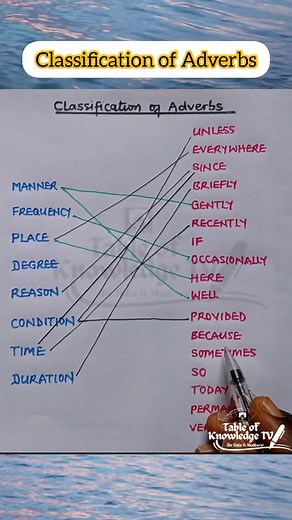 Classification of Adverbs
Classification of Adverbs
UNLESS
EVERYWHERE
SINCE
MANNER
BRIEFLY
FREQUENCY
GENTLY
RECENTLY
PLACE
IF
DEGREE
OCCASIONALLY
HERE
REASON
WELL
CONDITION
PROVIDED
BECAUSE
TIME
SOMETIMES
DURATION
SO
TODAY
PERMA
Table of
Knowledge TV